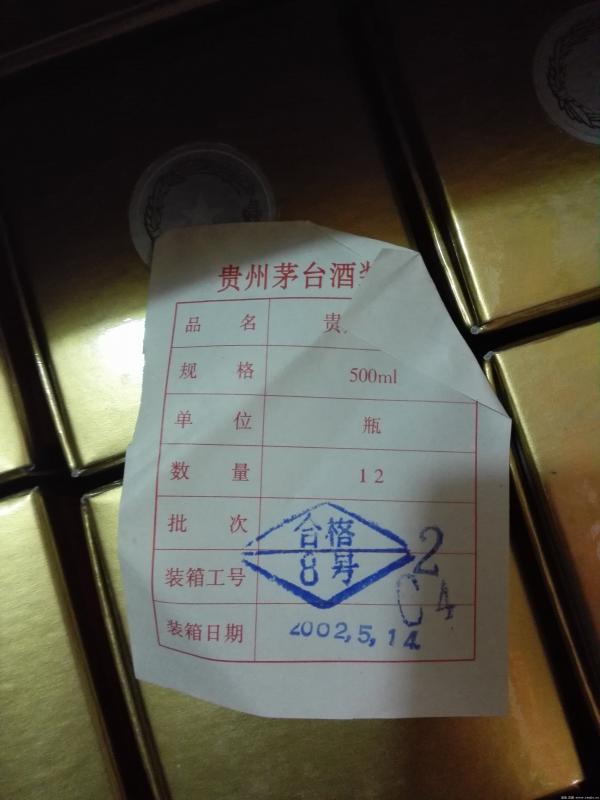 贵州茅台酒
品 名 贵
规 格 500ml
单 位 瓶
数 量 12
批 次
合格
8号
2
C4
装箱工号
装箱日期 2002,5,14